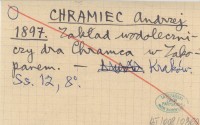 CHRAMIEC Andrzej
1897. Zakład wodoleczni-
czy dra Chramca w Zako-
panem. — Kraków.
Ss. 12, 8°.